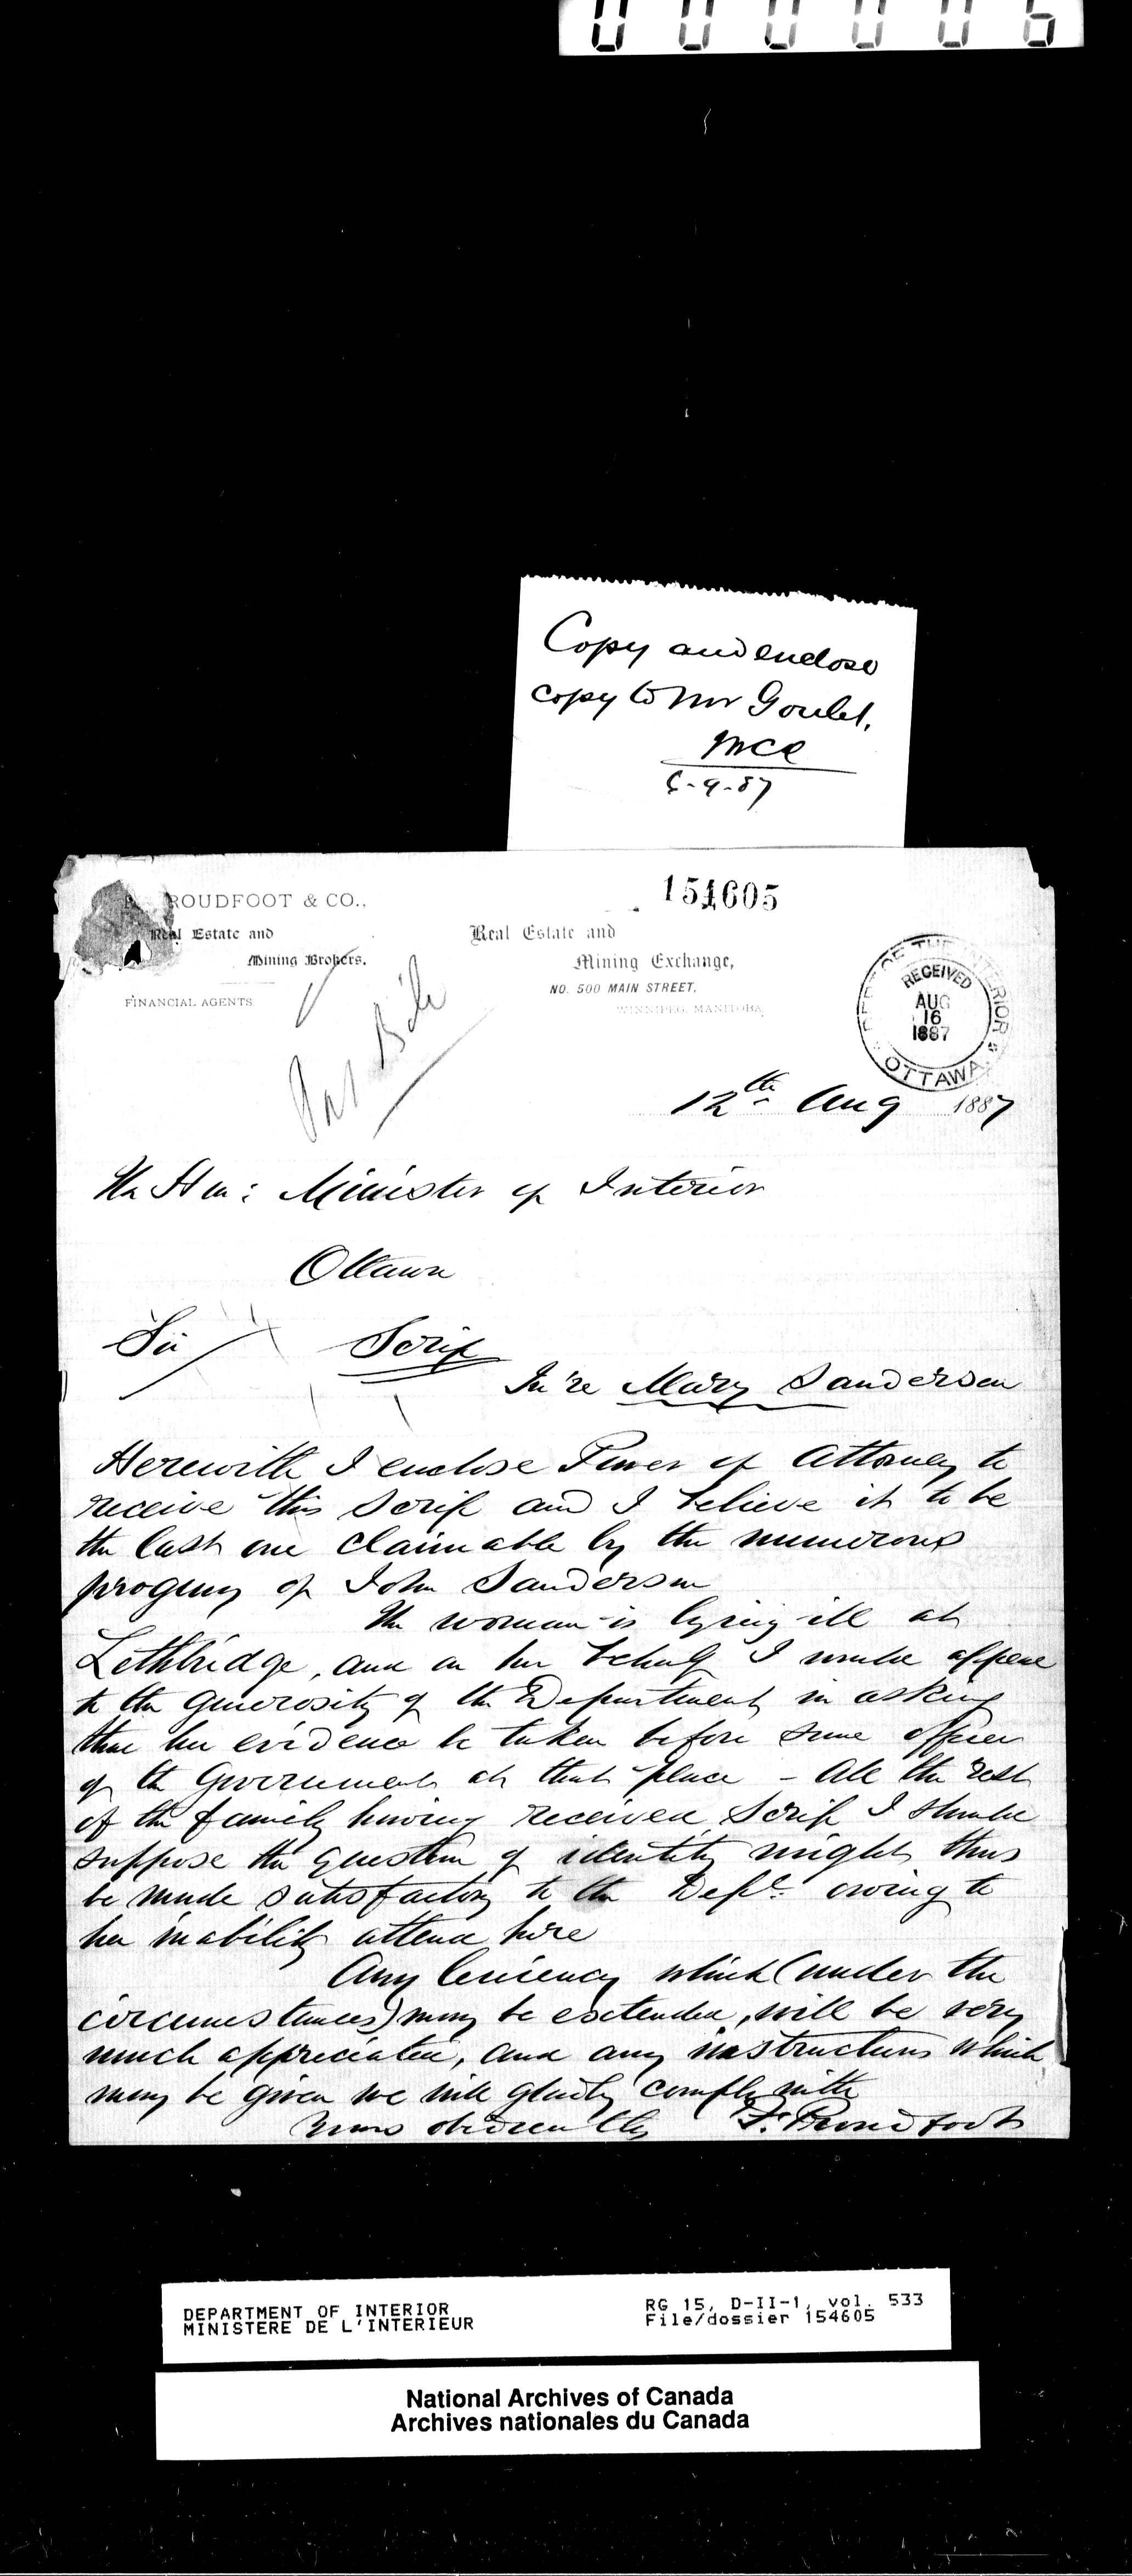 000006
Copy and enclose
copy to Mr Goulet.
6-9-87
ROUDFOOT & CO.,
Real Estate and
Mining Brokers.
FINANCIAL AGENTS
154605
Real Estate and
Mining Exchange,
NO. 500 MAIN STREET,
WINNIPEG, MANITOBA
DEPT OF THE INTERIOR
RECEIVED
AUG
16
1887
OTTAWA
12th Aug 1887
The Hon: Minister of Interior
Ottawa
Sir
Scrip
In 're Mary Sanderson
Herewith I enclose Power of Attorney to
receive this Scrip and I believe it to be
the last one claimable by the numerous
progeny of John Sanderson
The woman is lying ill at
Lethbridge, and on her behalf I would appeal
to the generosity of the Department in asking
that her evidence be taken before some officer
of the Government at that place - All the rest
of the family having received Scrip I should
suppose the question of identity might thus
be made satisfactory to the Dept. owing to
her inability attend here
Any leniency which (under the
circumstances) may be extended, will be very
much appreciated, and any instructions which
may be given we will gladly comply with
Yours obediently F. Proudfoot
DEPARTMENT OF INTERIOR
MINISTERE DE L'INTERIEUR
RG 15, D-II-1, vol. 533
File/dossier 154605
National Archives of Canada
Archives nationales du Canada